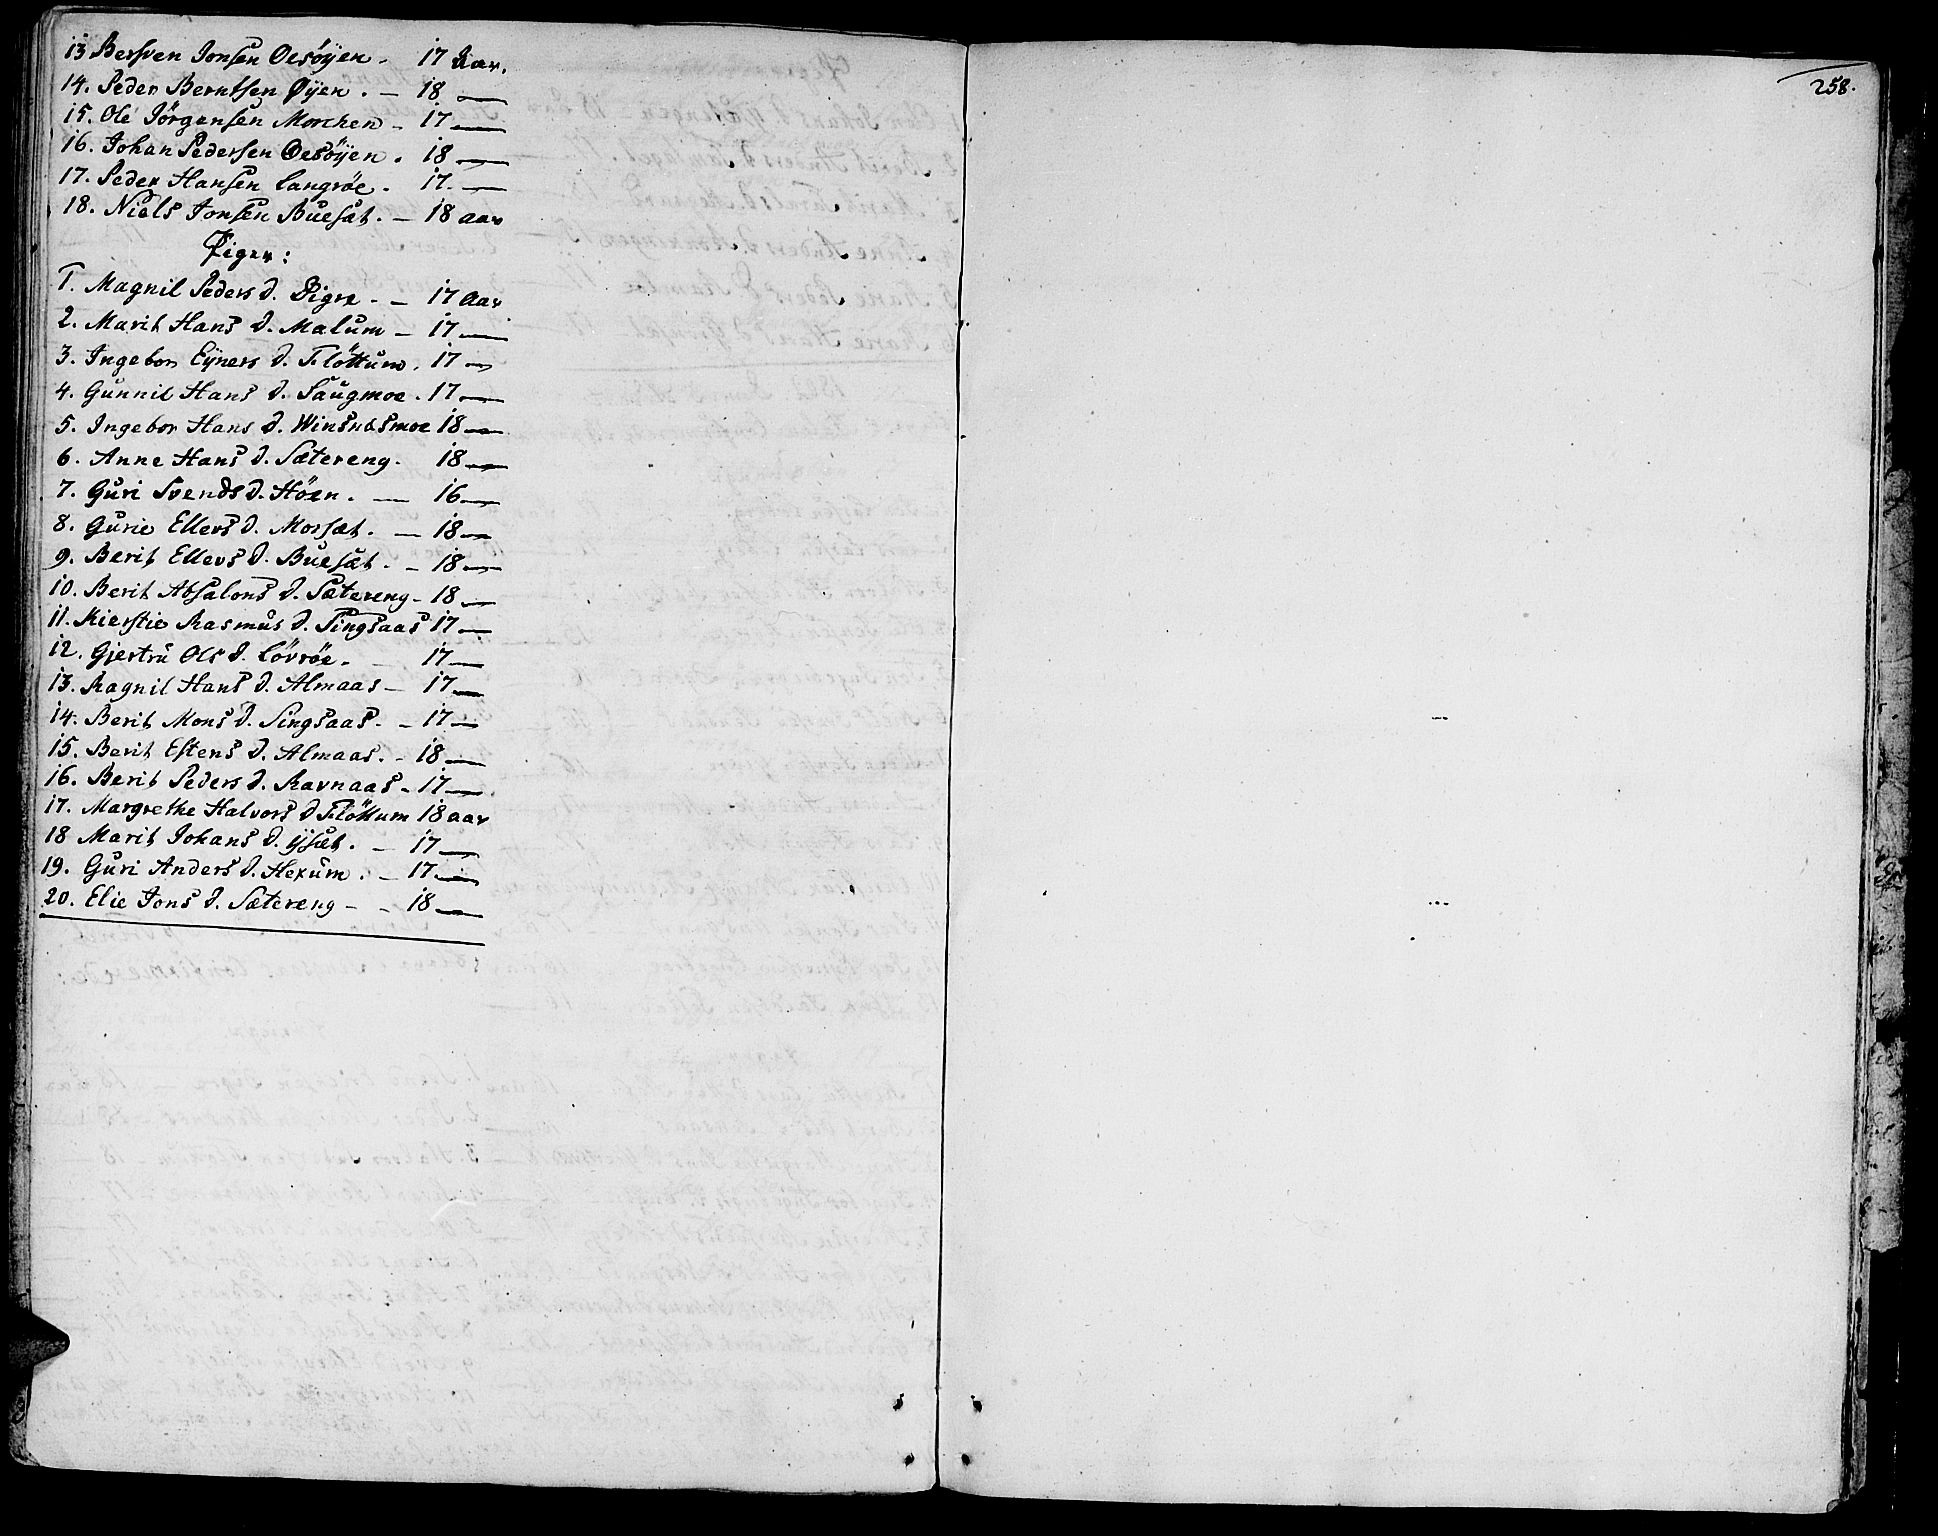 13 Bersven Jonsen Oesöyen - 17 Aar.
14. Peder Berntsen Øyen. - 18 —
15. Ole Jörgensen Morchen - 17 —
16. Johan Pedersen Oesöyen. 18 —
17. Peder Hansen Langröe. 17. —
18. Niels Jonsen Buesæt. - 18 aar
Piger:
1. Magnil Peders d. Digre - - 17 Aar
2. Marit Hans d. Malum - 17 —
3. Ingebor Eyners d. Flöttum. 17 —
4. Gunnil Hans d. Haugmoe. 17 —
5. Ingebor Hans d. Winsnesmoe 18 —
6. Anne Hans d. Sætereng. 18 —
7. Guri Svends d. Höen. — 16 —
8. Gurie Ellevs d. Morsæt. — 18 —
9. Berit Ellevs d. Buesæt. - 18 —
10. Berit Absalons d. Sætereng - 18 —
11. Kierstie Rasmus d. Singsaas 17 —
12. Gjertru Ols d. Lövröe. - 17 —
13. Ragnil Hans d. Almaas - 17 —
14. Berit Mons d. Singsaas. - 17 —
15. Berit Estens d. Almaas. - 18 —
16. Berit Peders d. Ravnaas - 17 —
17. Margrethe Halvors d Flöttum 18 aar
18 Marit Johans d. ysæt. - 17 —
19. Guri Anders d. Hexum. - 17 —
20. Elie Jons d. Sætereng - - 18 —
258.